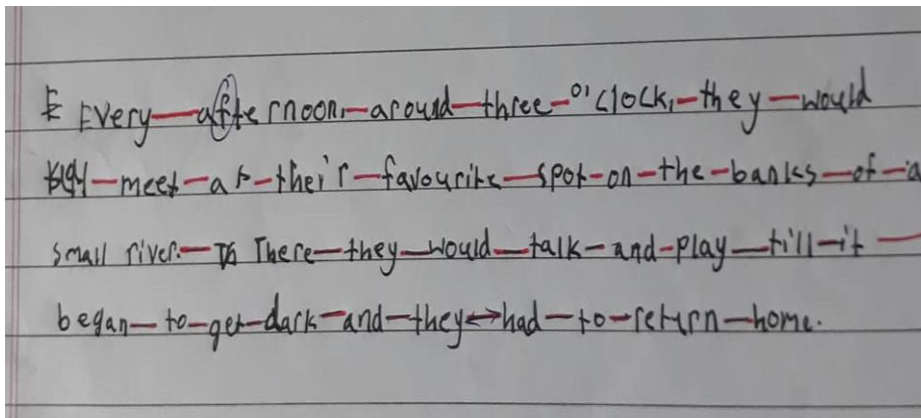 Every afternoon, around three o'clock, they would
meet at their favourite spot on the banks of a
small river. There they would talk and play till it
began to get dark and they had to return home.